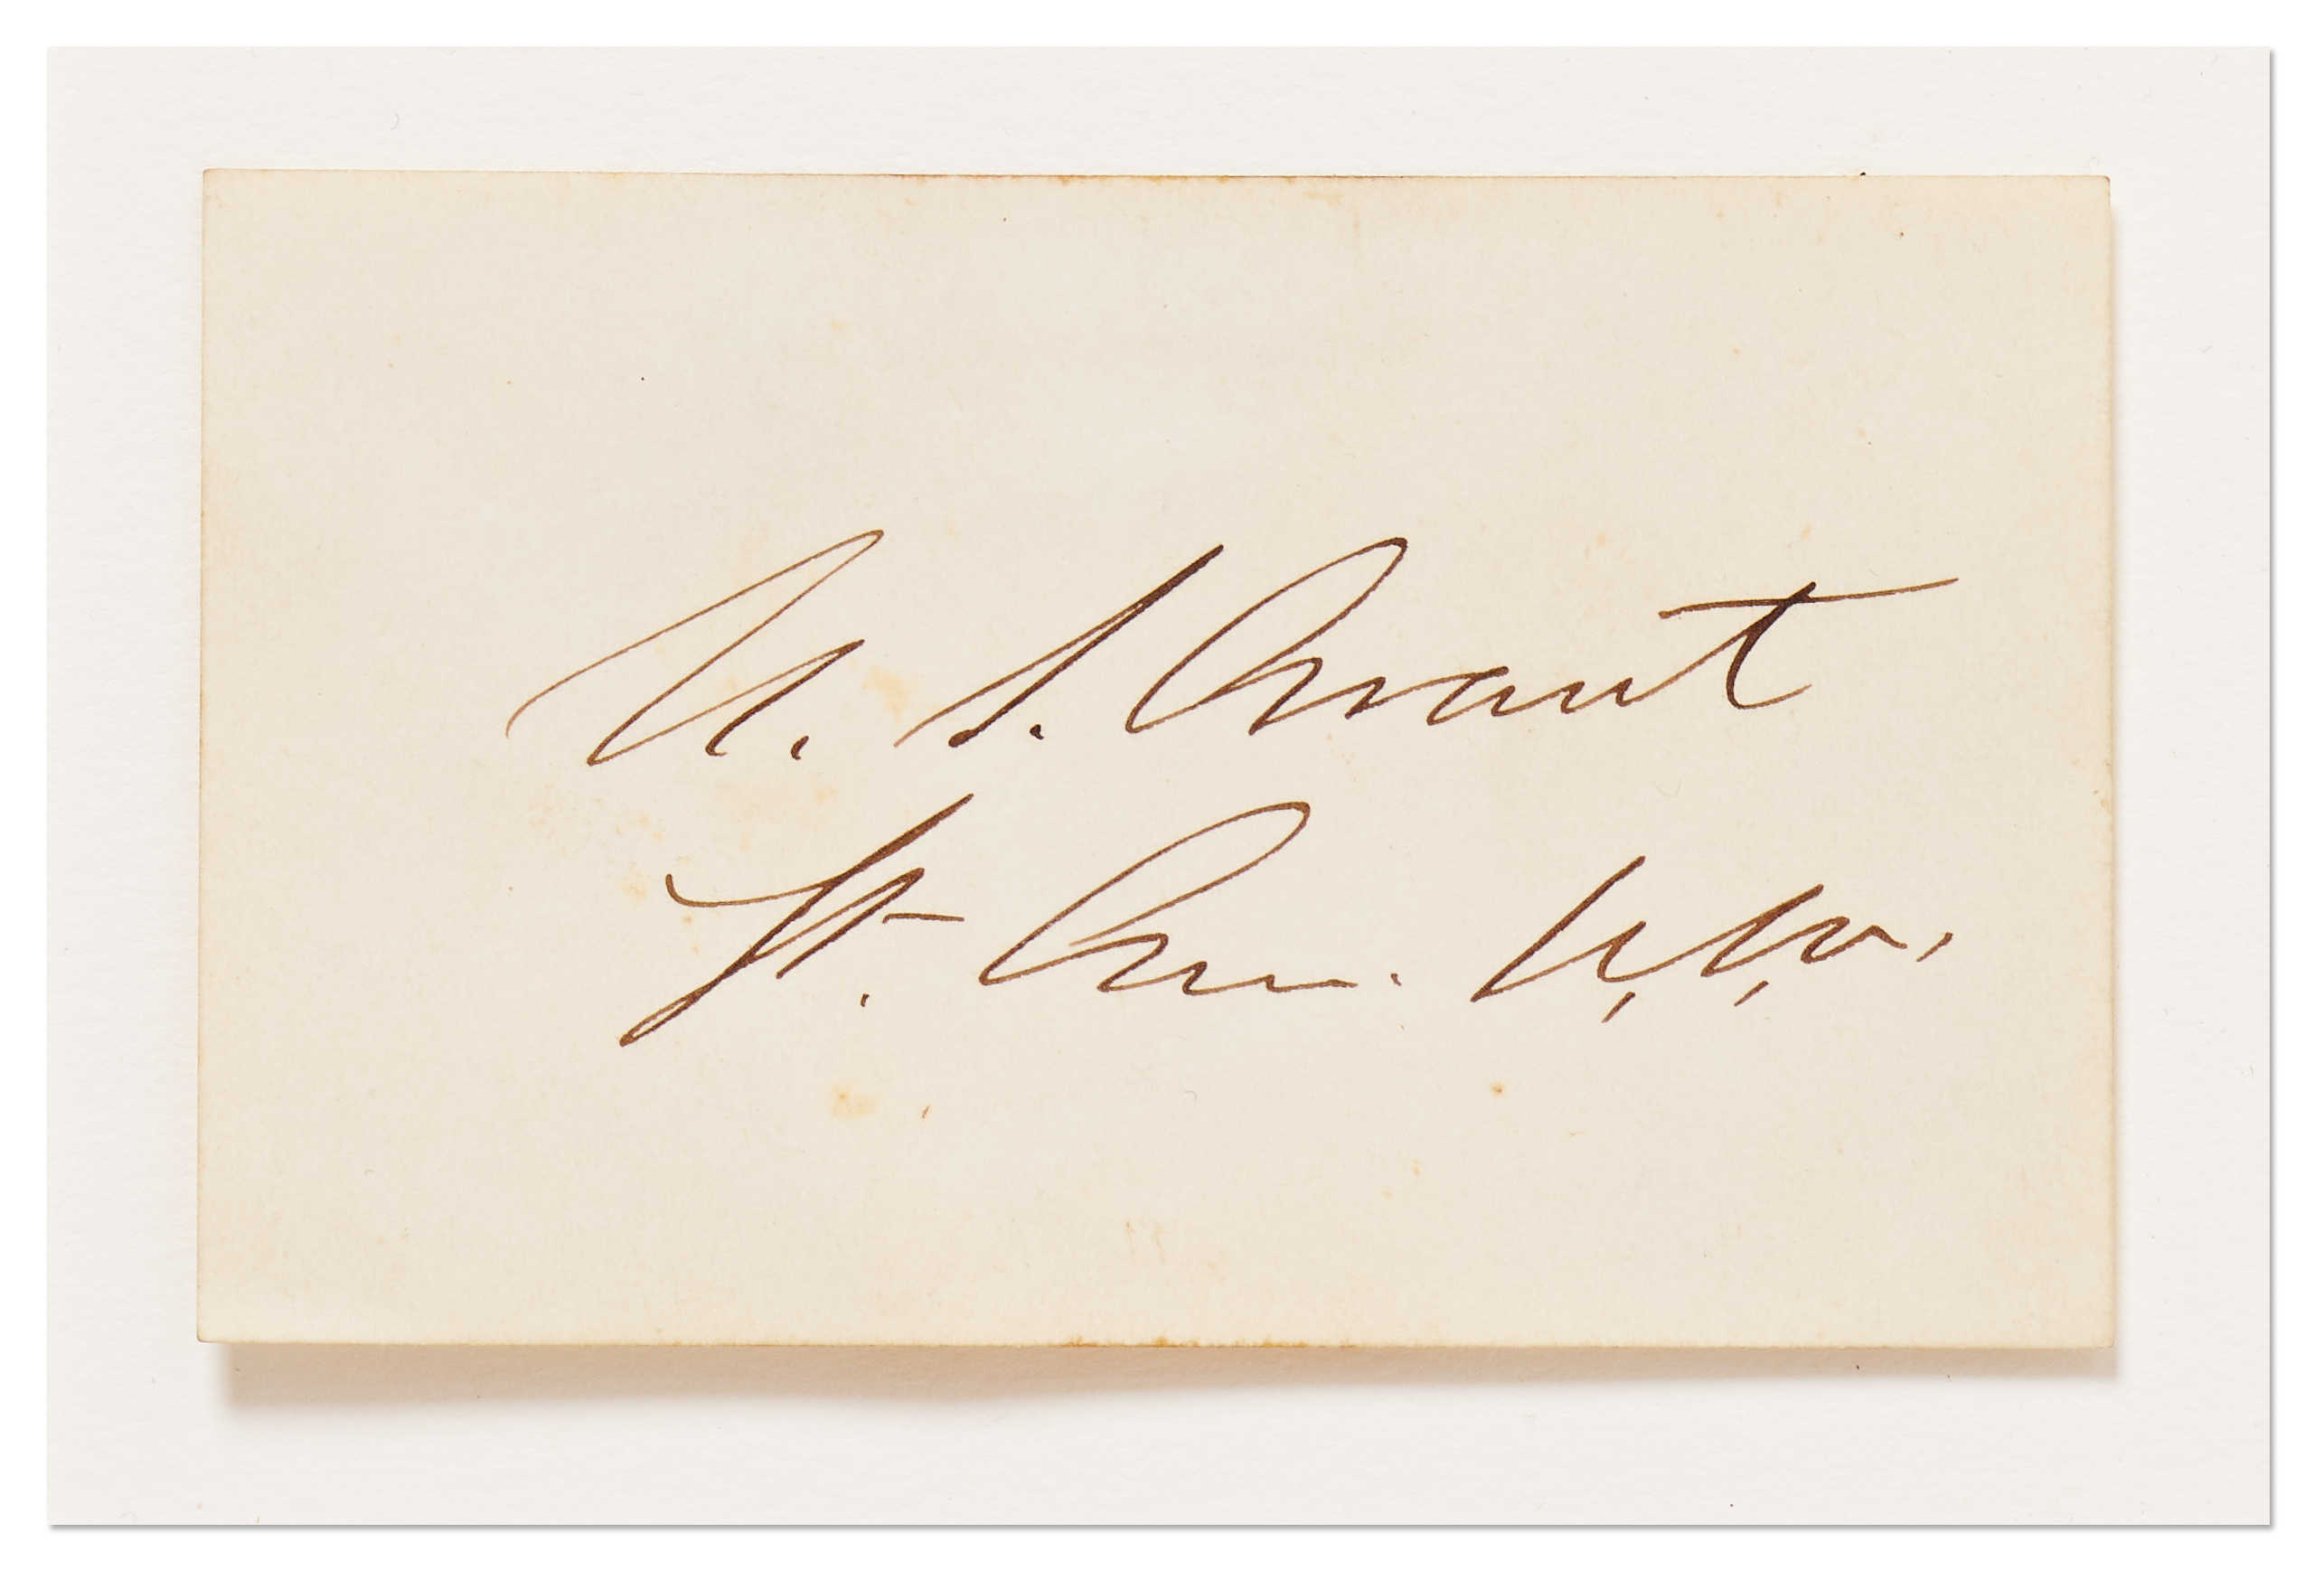 U. S. Grant
Lt. Gen. U.S.A.